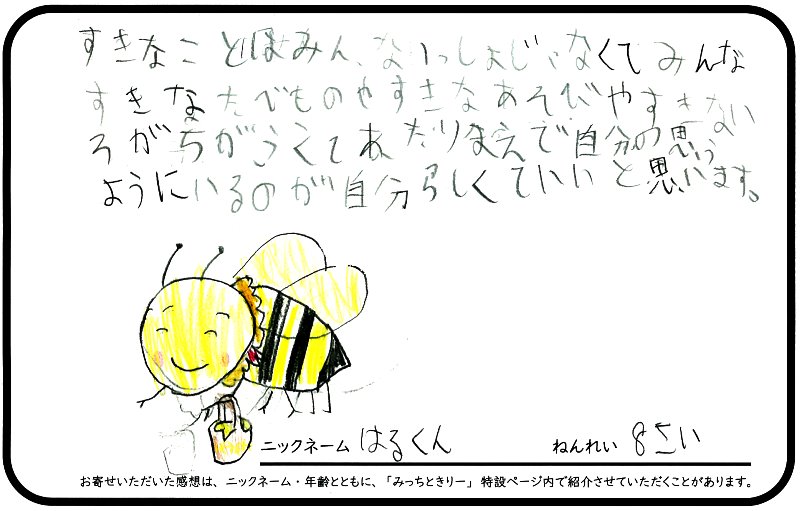 すきなことはみんないっしょじゃなくてみんな
すきなたべものやすきなあそびやすきないい
ろがちがうくてあたりまえで自分の思う
ようにいるのが自分らしくていいと思います。
ニックネーム はるくん ねんれい 8さい
お寄せいただいた感想は、ニックネーム・年齢とともに、「みっちときりー」特設ページ内で紹介させていただくことがあります。